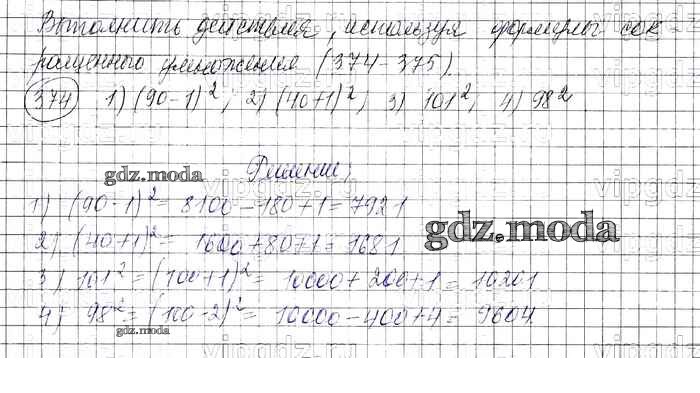 Выполнить действия, используя формулы сок
ращенного умножения (374-375).
374 1) (90-1)²; 2) (40+1)²; 3) 101²; 4) 98²
Решение:
gdz.moda
1) (90-1)² = 8100-180+1=7921
2) (40+1)² = 1600+80+1=1681
gdz.moda
3) 101² = (100+1)² = 10000+200+1=10201
4) 98² = (100-2)² = 10000-400+4= 9604.
gdz.moda